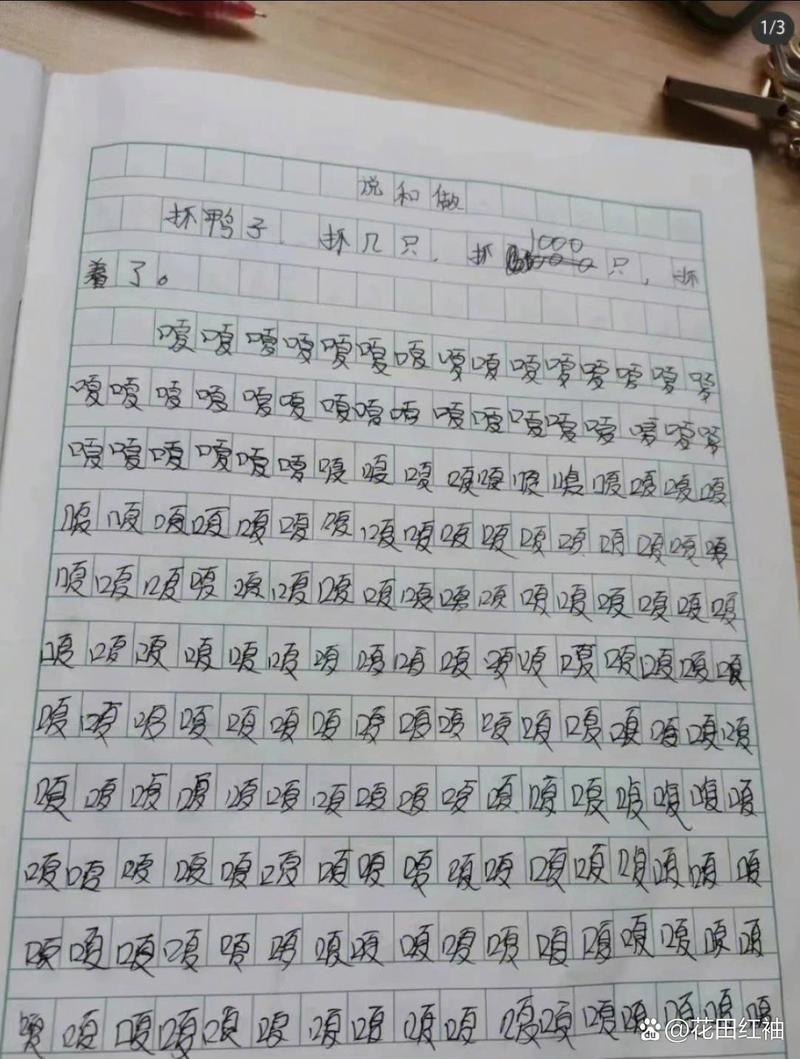 1/3
说和做
抓鸭子，抓几只，抓1000只，抓
着了。
嘎嘎嘎嘎嘎嘎嘎嘎嘎嘎嘎嘎嘎嘎嘎
嘎嘎嘎嘎嘎嘎嘎嘎嘎嘎嘎嘎嘎嘎嘎嘎嘎
嘎嘎嘎嘎嘎嘎嘎嘎嘎嘎嘎嘎嘎嘎嘎嘎嘎
嘎嘎嘎嘎嘎嘎嘎嘎嘎嘎嘎嘎嘎嘎嘎嘎嘎
嘎嘎嘎嘎嘎嘎嘎嘎嘎嘎嘎嘎嘎嘎嘎嘎嘎
嘎嘎嘎嘎嘎嘎嘎嘎嘎嘎嘎嘎嘎嘎嘎嘎嘎
嘎嘎嘎嘎嘎嘎嘎嘎嘎嘎嘎嘎嘎嘎嘎嘎嘎
嘎嘎嘎嘎嘎嘎嘎嘎嘎嘎嘎嘎嘎嘎嘎嘎嘎
嘎嘎嘎嘎嘎嘎嘎嘎嘎嘎嘎嘎嘎嘎嘎嘎嘎
嘎嘎嘎嘎嘎嘎嘎嘎嘎嘎嘎嘎嘎嘎嘎嘎嘎
嘎嘎嘎嘎嘎嘎嘎嘎嘎嘎嘎嘎嘎嘎嘎嘎嘎
Bai du @花田红袖